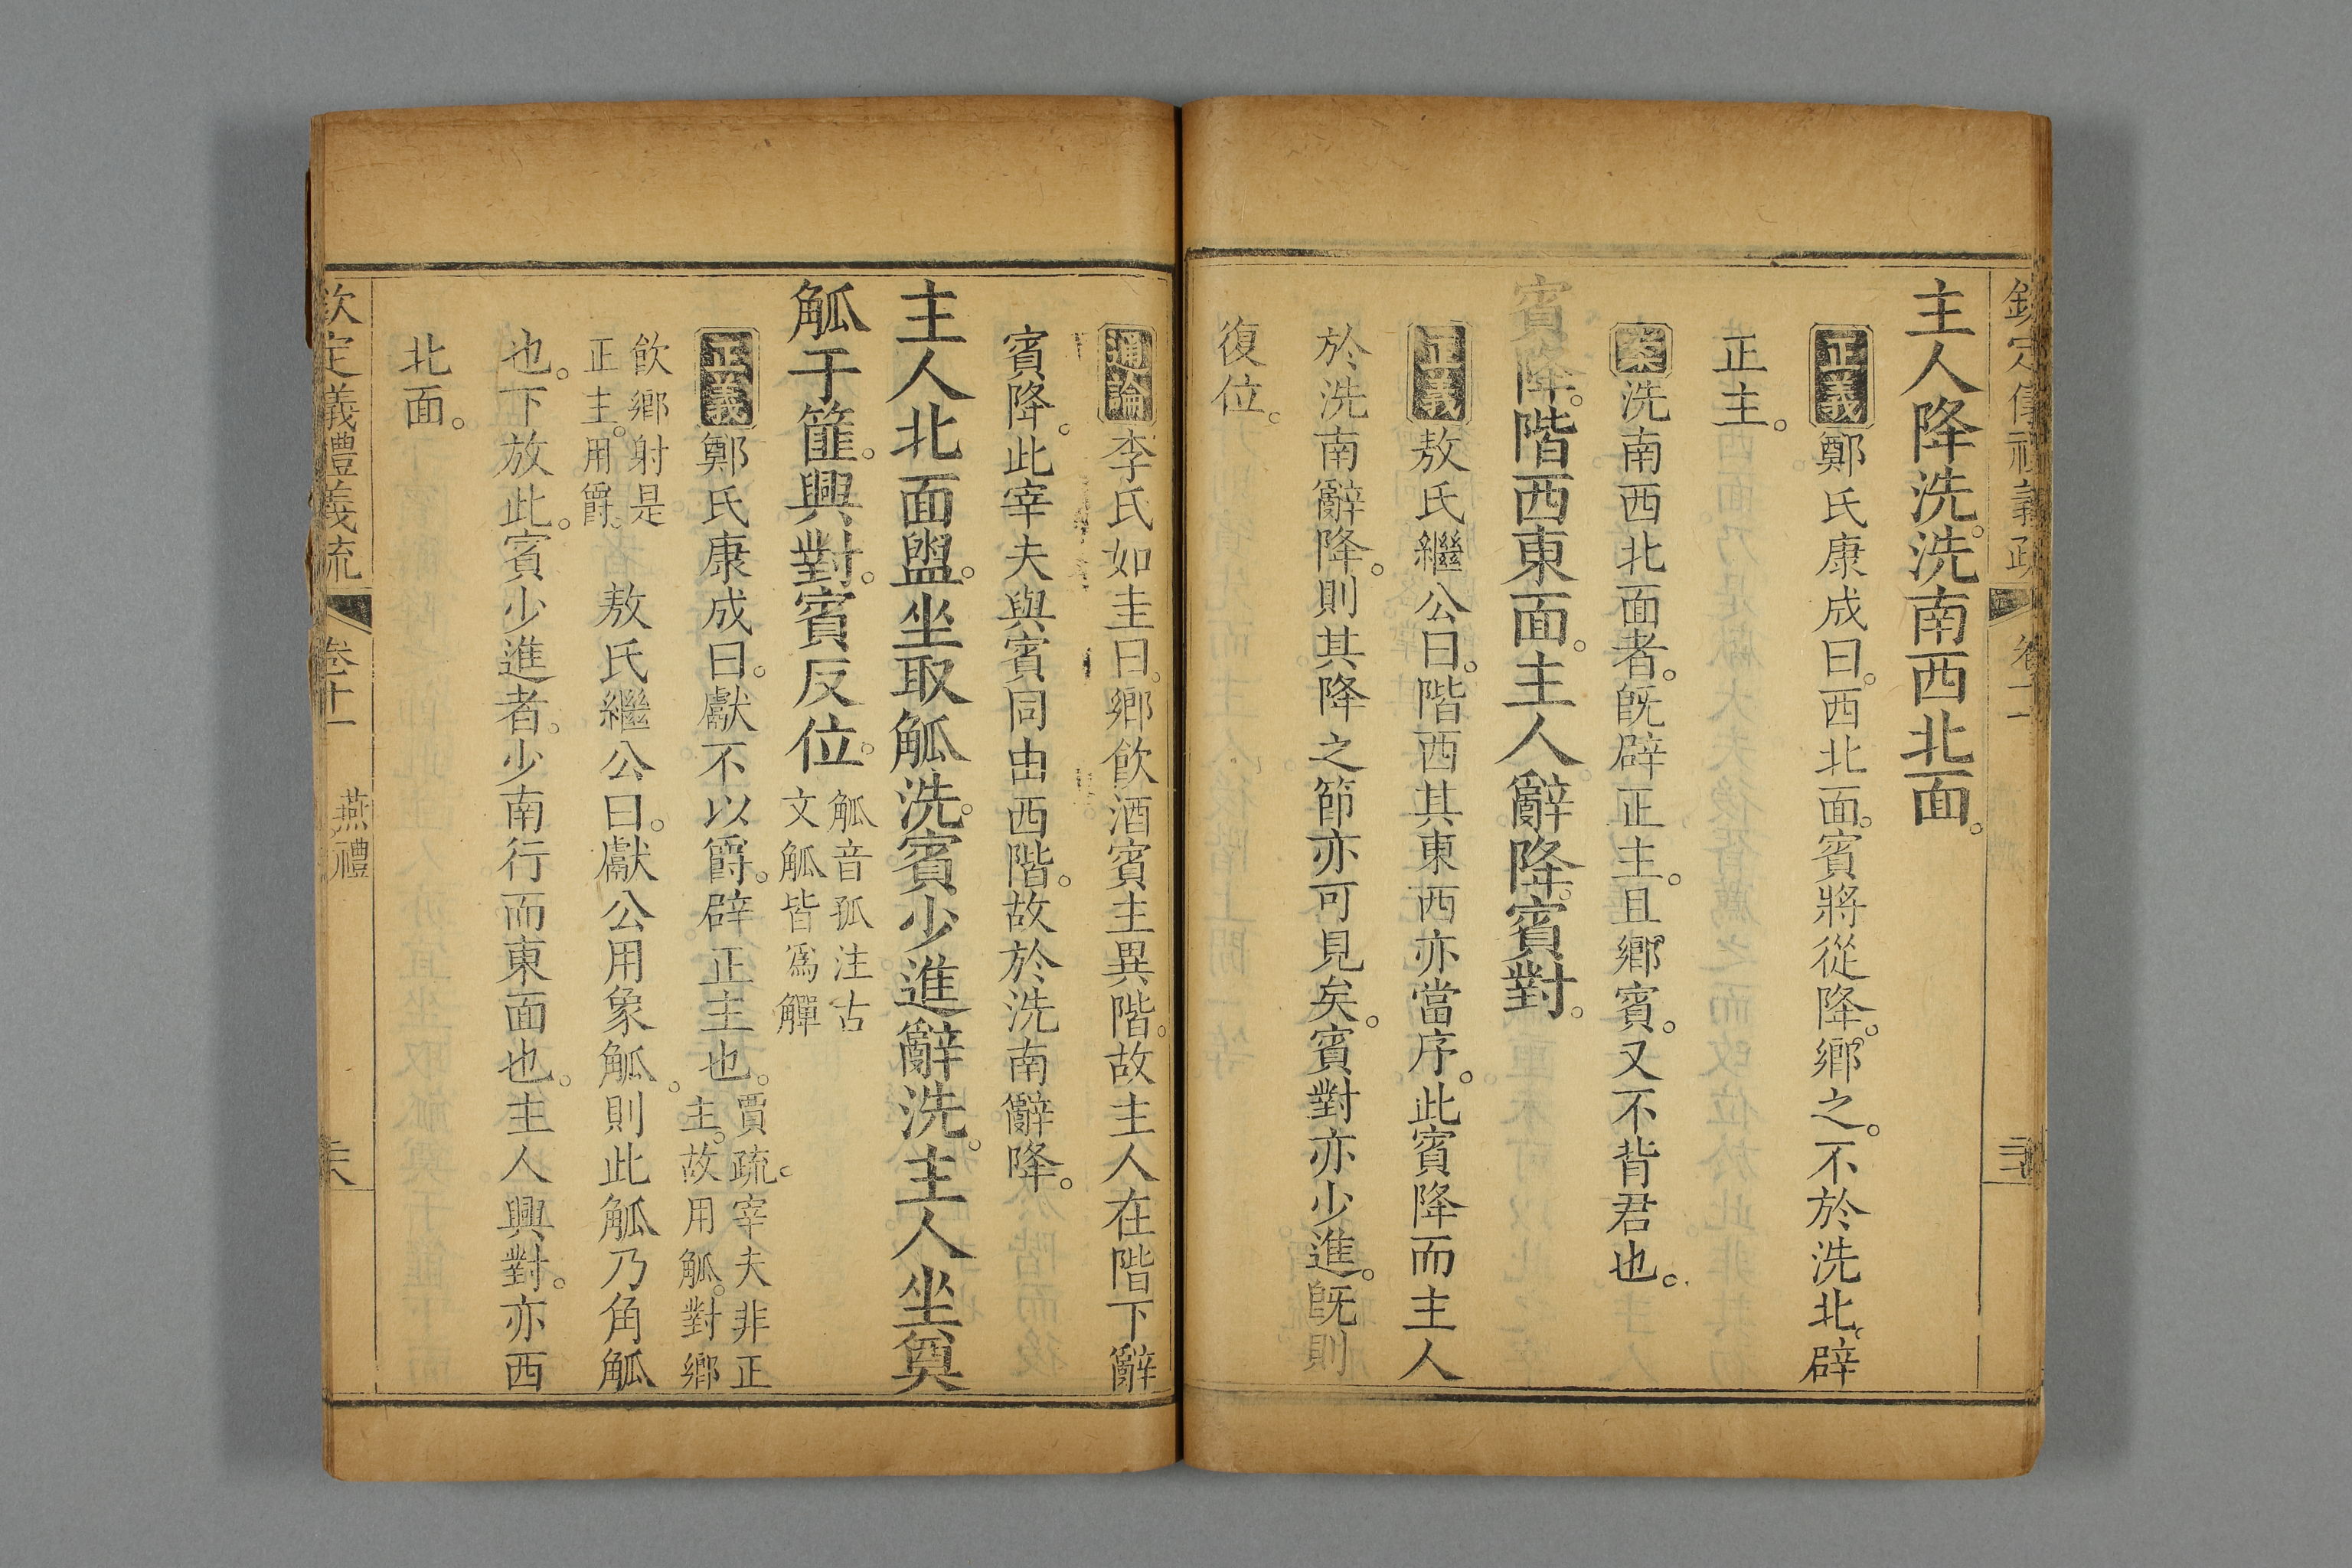 主人降洗。洗南西北面。
正義鄭氏康成曰。西北面。賓將從降。鄉之。不於洗北。辟
正主。
案洗南西北面者。旣辟正主。且鄉賓。又不背君也。
賓降。階西東面。主人辭降。賓對。
正義敖氏繼公曰。階西其東西亦當序。此賓降而主人
於洗南辭降。則其降之節亦可見矣。賓對亦少進。旣則
復位。
通論李氏如圭曰。鄉飲酒賓主異階。故主人在階下辭
賓降。此宰夫與賓同由西階。故於洗南辭降。
主人北面盥。坐取觚洗。賓少進辭洗。主人坐奠
觚于篚。興對。賓反位。觚音孤注古
文觚皆爲觶
正義鄭氏康成曰。獻不以爵。辟正主也。賈疏。宰夫非正
主。故用觚。對鄉
飲鄉射是
正主。用爵。敖氏繼公曰。獻公用象觚。則此觚乃角觚
也。下放此。賓少進者。少南行而東面也。主人興對。亦西
北面。
欽定義禮義疏 卷十一 燕禮